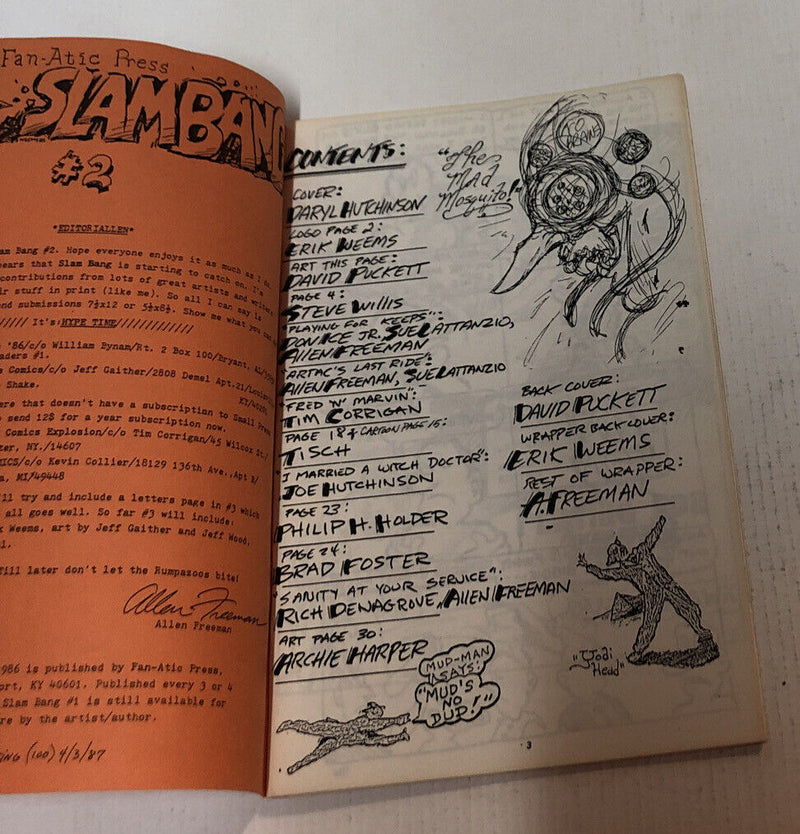 Fan-Atic Press
SLAM BANG
#2
*EDITORIALLEN*
am Bang #2. Hope everyone enjoys it as much as I do.
ears that Slam Bang is starting to catch on. I'm
contributions from lots of great artists and writers
ir stuff in print (like me). So all I can say is
nd submissions 7½x12 or 5½x8½. Show me what you can
///// It's:HYPE TIME/////////////
'86/c/o William Bynam/Rt. 2 Box 100/Bryant,
aders #1.
Comics/c/o Jeff Gaither/2808 Demel Apt.21/
Shake.
KY/40214
ere that doesn't have a subscription to Small Press
send 12$ for a year subscription now.
Comics Explosion/c/o Tim Corrigan/45 Wilcox St./
ter, NY./14607
MICS/c/o Kevin Collier/18129 136th Ave.,Apt
a, MI/49448
ill try and include a letters page in #3 which
all goes well. So far #3 will include:
k Weems, art by Jeff Gaither and Jeff Wood,
Till later don't let the Rumpazoos bite!
Allen Freeman
Allen Freeman
986 is published by Fan-Atic Press,
ort, KY 40601. Published every 3 or 4
Slam Bang #1 is still available for
re by the artist/author.
ING (100) 4/3/87
CONTENTS:
COVER:
DARYL HUTCHINSON
LOGO PAGE 2:
ERIK WEEMS
ART THIS PAGE:
DAVID PUCKETT
PAGE 4:
STEVE WILLIS
"PLAYING FOR KEEPS":
DON ICE JR, SUE LATTANZIO,
ALLEN FREEMAN
"ARTAC'S LAST RIDE":
ALLEN FREEMAN, SUE LATTANZIO
"FRED 'N' MARVIN":
TIM CORRIGAN
PAGE 18 & CARTOON PAGE 15:
TISCH
"I MARRIED A WITCH DOCTOR":
JOE HUTCHINSON
PAGE 23:
PHILIP H. HOLDER
PAGE 24:
BRAD FOSTER
"SANITY AT YOUR SERVICE":
RICH DENAGROVE, ALLEN FREEMAN
ART PAGE 30:
ARCHIE HARPER
"The
Mad
Mosquito!"
BRAINS
BACK COVER:
DAVID PUCKETT
WRAPPER BACK COVER:
ERIK WEEMS
REST OF WRAPPER:
A. FREEMAN
"Yodi
Head"
MUD-MAN
SAYS:
"MUD'S
NO
DUD!"
3